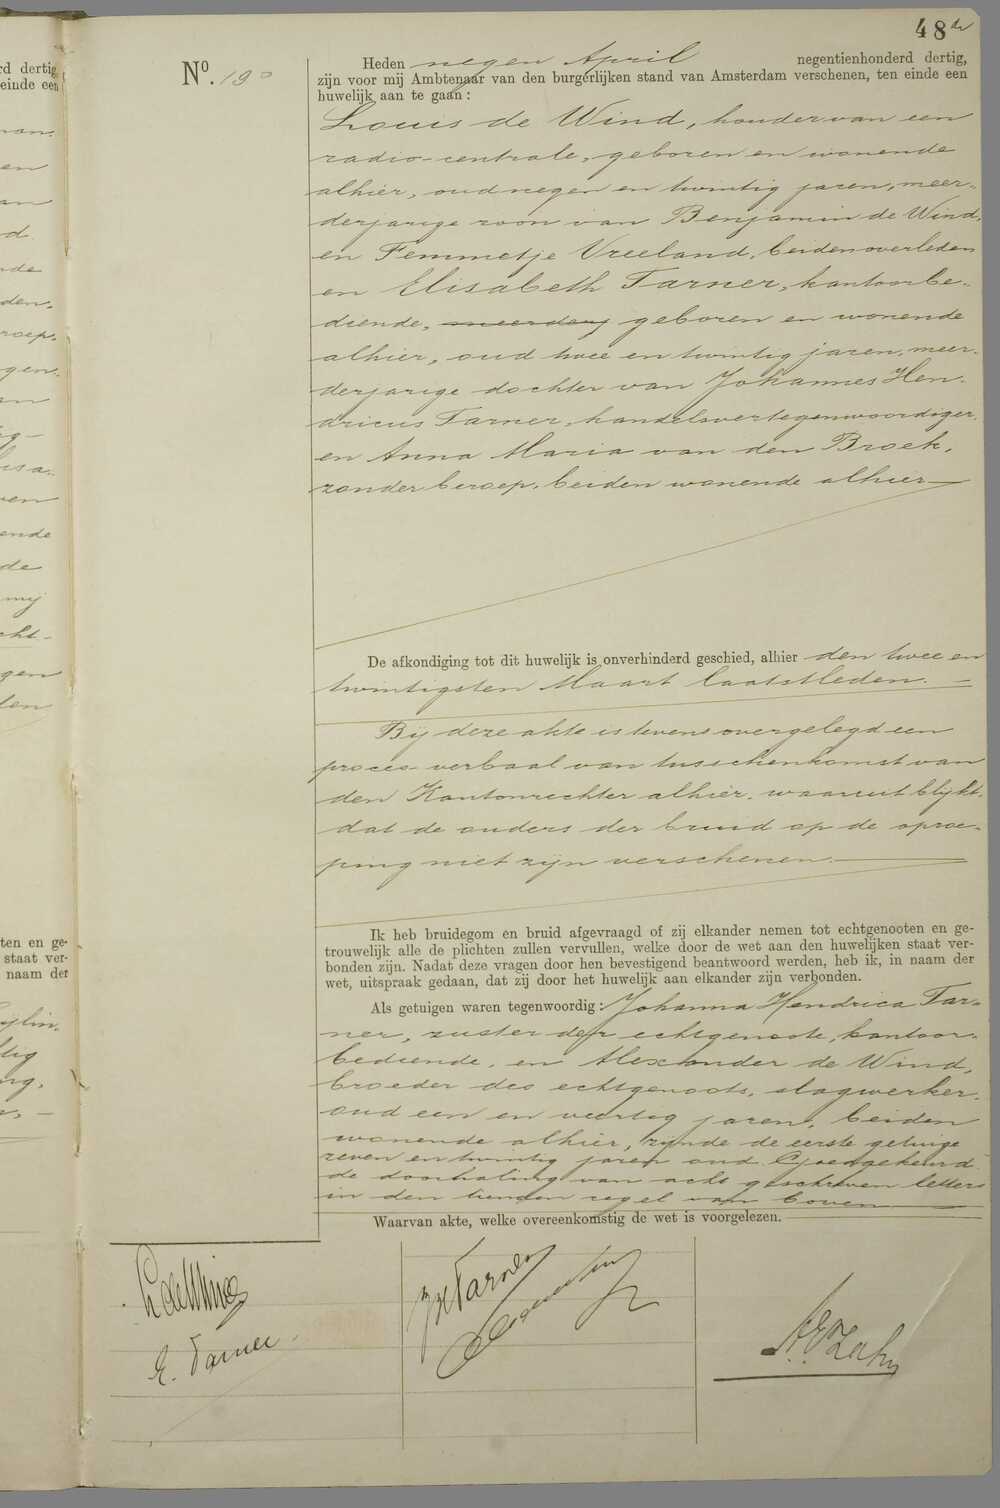 48
No. 190
Heden negen April negentienhonderd dertig,
zijn voor mij Ambtenaar van den burgerlijken stand van Amsterdam verschenen, ten einde een
huwelijk aan te gaan:
Louis de Wind, houder van een
radio-centrale, geboren en wonende
alhier, oud negen en twintig jaren, meer-
derjarige zoon van Benjamin de Wind,
en Femmetje Vreeland, beiden overleden
en Elisabeth Tarner, kantoorbe-
diende, meerderj geboren en wonende
alhier, oud twee en twintig jaren, meer-
derjarige dochter van Johannes Hen-
dricus Tarner, handelsvertegenwoordiger,
en Anna Maria van den Broek,
zonder beroep, beiden wonende alhier
De afkondiging tot dit huwelijk is onverhinderd geschied, alhier den twee en
twintigsten Maart laatstleden.
Bij deze akte is tevens overgelegd een
proces-verbaal van tusschenkomst van
den Kantonrechter alhier, waaruit blijkt,
dat de ouders der bruid op de oproe-
ping niet zijn verschenen.
Ik heb bruidegom en bruid afgevraagd of zij elkander nemen tot echtgenooten en ge-
trouwelijk alle de plichten zullen vervullen, welke door de wet aan den huwelijken staat ver-
bonden zijn. Nadat deze vragen door hen bevestigend beantwoord werden, heb ik, in naam der
wet, uitspraak gedaan, dat zij door het huwelijk aan elkander zijn verbonden.
Als getuigen waren tegenwoordig: Johanna Hendrica Tar-
ner, zuster der echtgenoote, kantoor-
bediende, en Alexander de Wind,
broeder des echtgenoots, slagwerker,
oud een en veertig jaren, beiden
wonende alhier, zijnde de eerste getuige
zeven en twintig jaren oud. Goedgekeurd
de doorhaling van acht geschreven letters
in den tienden regel van boven
Waarvan akte, welke overeenkomstig de wet is voorgelezen.
L de Wind
E. Tarner
JH Tarner